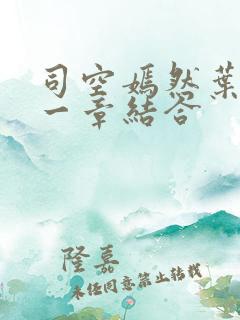 司空嫣然葉
一章結答
隆嘉
未经同意禁止转载